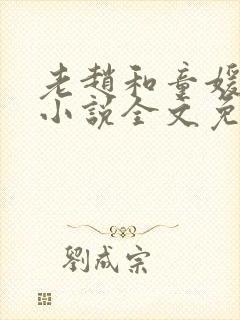 老趙和童媛
小說全文免
劉成宗